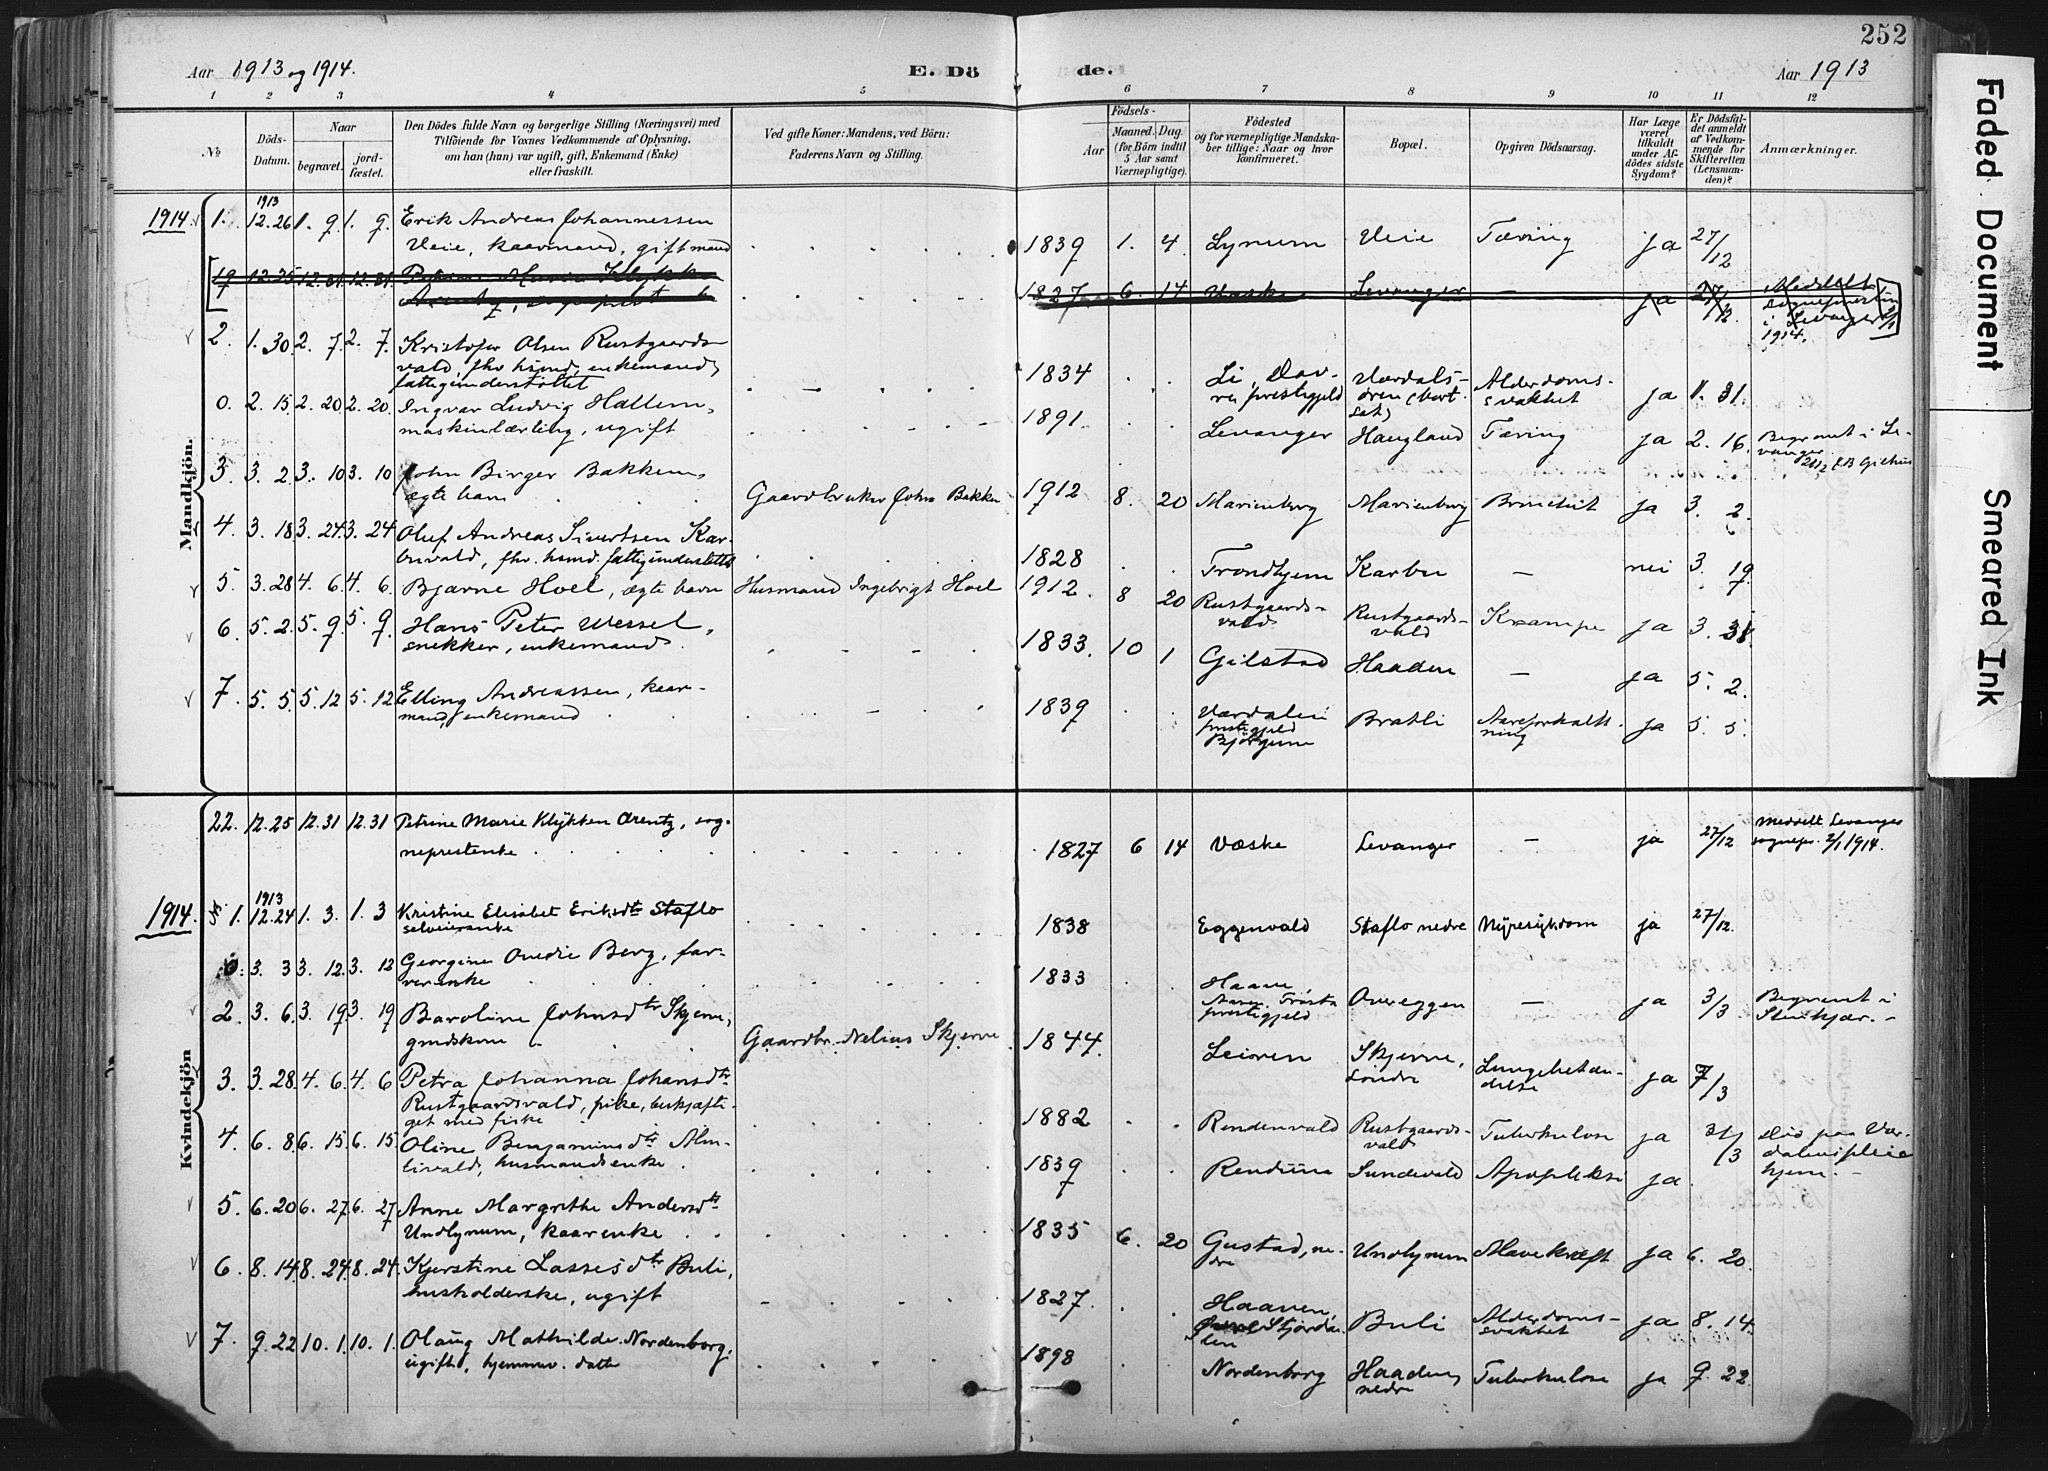 252
Aar 1913 og 1914.
E. Dö de.
Aar 1913
1 2 3 4 5 6 7 8 9 10 11 12
No
Döds-Datum.
Naar
begravet.
jord-fæstet.
Den Dödes fulde Navn og borgerlige Stilling (Næringsvei) med
Tilföiende for Voxnes Vedkommende af Oplysning,
om han (hun) var ugift, gift, Enkemand (Enke)
eller fraskilt.
Ved gifte Koner: Mandens, ved Börn:
Faderens Navn og Stilling.
Födsels-
Aar
Maaned. Dag.
(for Börn indtil
5 Aar samt
Værnepligtige).
Födested
og for værnepligtige Mandska-
ber tillige: Naar og hvor
konfirmeret.
Bopæl.
Opgiven Dödsaarsag.
Har Læge
været
tilkaldt
under Af-
dödes sidste
Sygdom?
Er Dödsfal-
det anmeldt
af Vedkom-
mende for
Skifteretten
(Lensman-
den)?
Anmærkninger.
Mandkjön.
1914 1. 1913 12.26 1. 9 1. 9. Erik Andreas Johannessen
Veie, kaarmand, gift mand 1839 1. 4 Lynum Veie Tæring ja 27/12
19 12.25 12.31 12.31 Petrine Marie Klykken
1827 6. 14 Væske Levanger — ja 27/12 Meddelt
Sognepresten
i Levanger
1914.
2. 1. 30. 2. 7. 2. 7. Kristofer Olsen Rustgaards-
vald, fhv. hsmd, enkemand,
fattigunderstöttet 1834 Li, Dov-
re prestegjeld Værdals-
ören Alderdoms-
svakhet ja 1. 31.
0. 2. 15. 2. 20. 2. 20. Ingvar Ludvig Hallem,
maskinlærling, ugift 1891. Levanger Haugland Tæring ja 2. 16. Begravet i Le-
vanger
3. 3. 2. 3. 10 3. 10 John Birger Bakken,
ægte barn Gaardbruker John Bakken 1912 8. 20 Marienborg Marienborg Bronchit ja 3. 2.
4. 3. 18 3. 24. 3. 24 Oluf Andreas Sivertsen Kar-
buvald, fhv. hsmd. fattigunderstöttet 1828 Trondhjem Karbu — nei 3. 19.
5. 3. 28 4. 6. 4. 6. Bjarne Hoel, ægte barn Husmand Ingebrigt Hoel 1912. 8 20 Rustgaards-
vald Rustgaards-
vald Krampe ja 3.
6. 5. 2. 5. 9. 5. 9. Hans Peter Wessel,
snekker, enkemand. 1833. 10 1 Gilstad Haaden — ja 5. 2.
7. 5. 5. 5. 12 5. 12 Elling Andreassen, kaar-
mand, enkemand 1839 Værdalen
prestegjeld
Bratli Aareforkalk-
ning ja 5. 5.
Kvindekjön
22. 12.25 12.31 12.31 Petrine Marie Klykken Arentz, sog-
neprestenke 1827 6 14 Væske Levanger — ja 27/12 Meddelt Levanger
sognepr. 2/1 1914.
1914. 1. 1913 12.24 1. 3. 1. 3 Kristine Elisabet Eriksdtr Staflo
selveierenke 1838 Eggenvald Staflo nedre Nyresykdom ja 27/12.
0. 3. 3 3. 12. 3. 12 Georgine Ovedie Berg, far-
verenke 1833 Haave
prestegjeld Övereggen — ja 3/3 Begravet i
Stenkjær. —
2. 3. 6. 3. 19 3. 19 Baroline Johnsdtr Skjerve,
grdskone Gaardbr. Nelius Skjerve 1844. Leiren Skjerve,
söndre Lungebetæn-
delse ja 7/3
3. 3. 28. 4. 6. 4. 6 Petra Johanna Johansdtr
Rustgaardsvald, pike, beskjæfti-
get med fiske 1882 Rendenvald Rustgaards-
vald Tuberkulose ja 31/3 Död paa Vær-
dalens pleie
hjem. —
4. 6. 8. 6. 15. 6. 15. Oline Benjaminsdtr Alm-
livald, husmandsenke 1839 Sundevald Apopleksi ja.
5. 6. 20 6. 27 6. 27 Anne Margrethe Andersdtr
Undlynum, kaarenke. 1835 6. 20 Gustad, ne-
dre Undlynum Mavekræft ja 6. 20.
6. 8. 14 8. 24 8. 24. Kjerstine Lassesdtr Buli,
husholderske, ugift 1827. Haaven,
Stjörda-
len Buli Alderdoms-
svakhet ja 8. 14.
7. 9. 22 10. 1. 10. 1. Olaug Mathilde Nordenborg,
ugift, hjemmev. datter 1898 Nordenborg Haaden,
nedre Tuberkulose ja 9. 22.
Faded Document
Smeared Ink